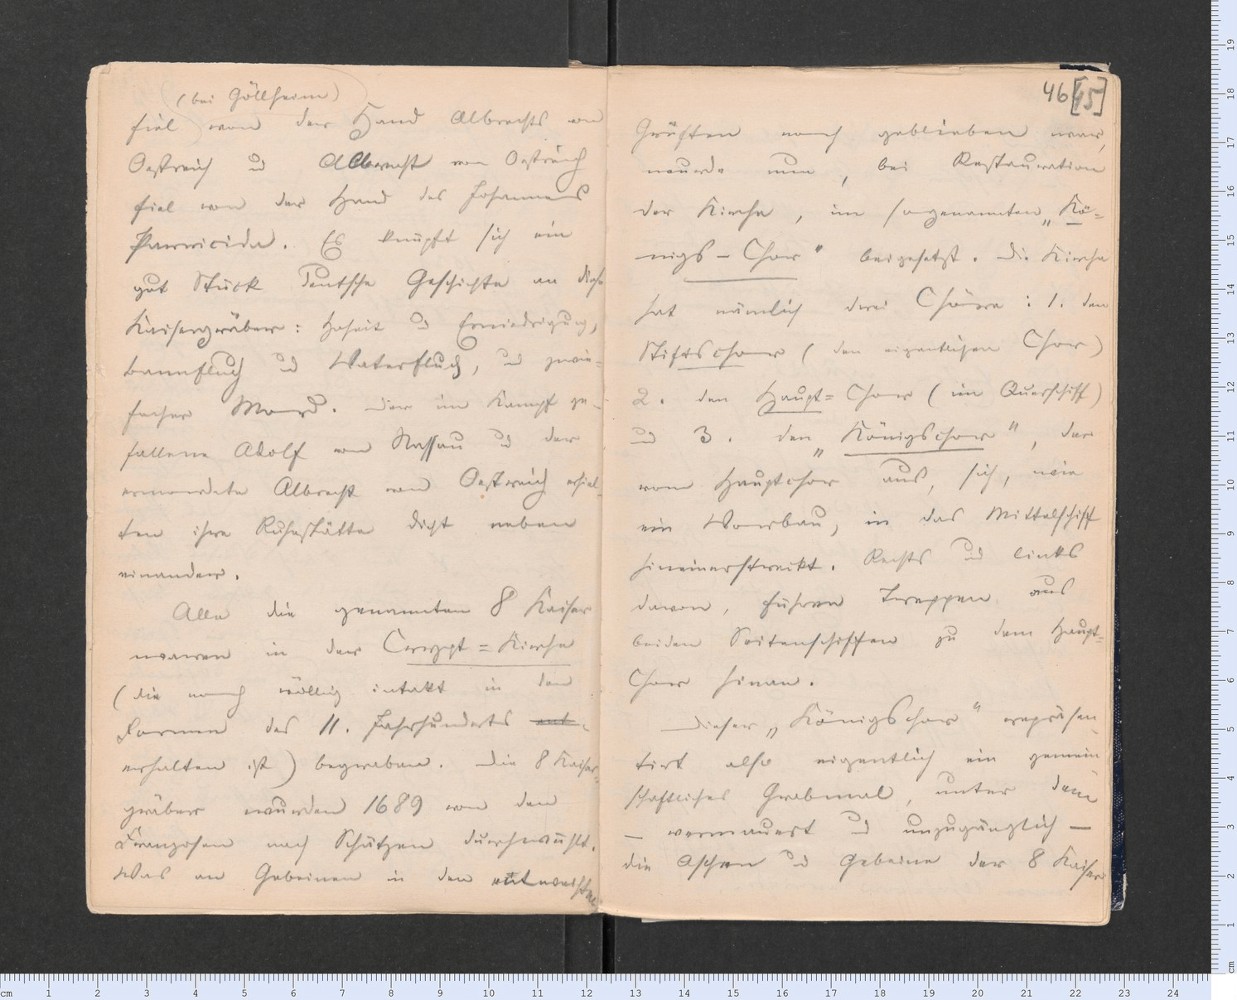 (bei Göllheim)
fiel von der Hand Albrechts von
Oestreich und Albrecht von Oestreich
fiel von der Hand des Johannes
Parricida. Es knüpft sich ein
gut Stück deutsche Geschichte an diese
Kaisergräber: Hoheit und Erniedrigung,
Bannfluch und Vaterfluch, und zwie-
facher Mord. Der im Kampf ge-
fallene Adolf von Nassau und der
ermordete Albrecht von Oestreich erhiel-
ten ihre Ruhestätte dicht neben
einander.
Alle die genannten 8 Kaiser
waren in der Crypt=Kirche
(die noch völlig intakt in den
Formen des 11. Jahrhunderts ent-
erhalten ist) begraben. Die 8 Kaiser-
gräber wurden 1689 von den
Franzosen nach Schätzen durchwühlt.
Was an Gebeinen in den entweihten
46 [45]
Grüften noch geblieben war,
wurde nun, bei Restauration
der Kirche, im sogenannten „Kö-
nigs-Chor" beigesetzt. Die Kirche
hat nämlich drei Chöre: 1. den
Stiftschor (den eigentlichen Chor)
2. den Haupt=Chor (im Querschiff)
und 3. den „Königschor", der
vom Hauptchor aus, sich, wie
ein Vorbau, in das Mittelschiff
hineinerstreckt. Rechts und links
davon, führen Treppen aus
beiden Seitenschiffen zu dem Haupt=
Chor hinan.
Dieser „Königschor" repräsen-
tirt also eigentlich ein gemein
schaftliches Grabmal, unter dem
— vermauert und unzugänglich —
die Aschen und Gebeine der 8 Kaiser